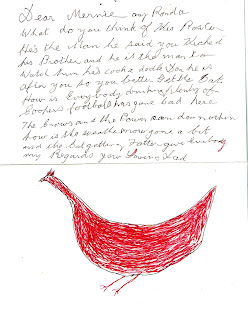 Dear Mernie any Ronda
What do you think of this Poster
He's the man he said you Kicked
his Brother and he is the man to
Watch him his cook a dodle Doo he is
after you so you better get the Bat
How is Everybody drinking plenty of
football has gone bad here
The Crows and the Power can down when
how is the weather now gone a bit
and the kid getting Fatter give Everbody
my Regards your Loving Dad